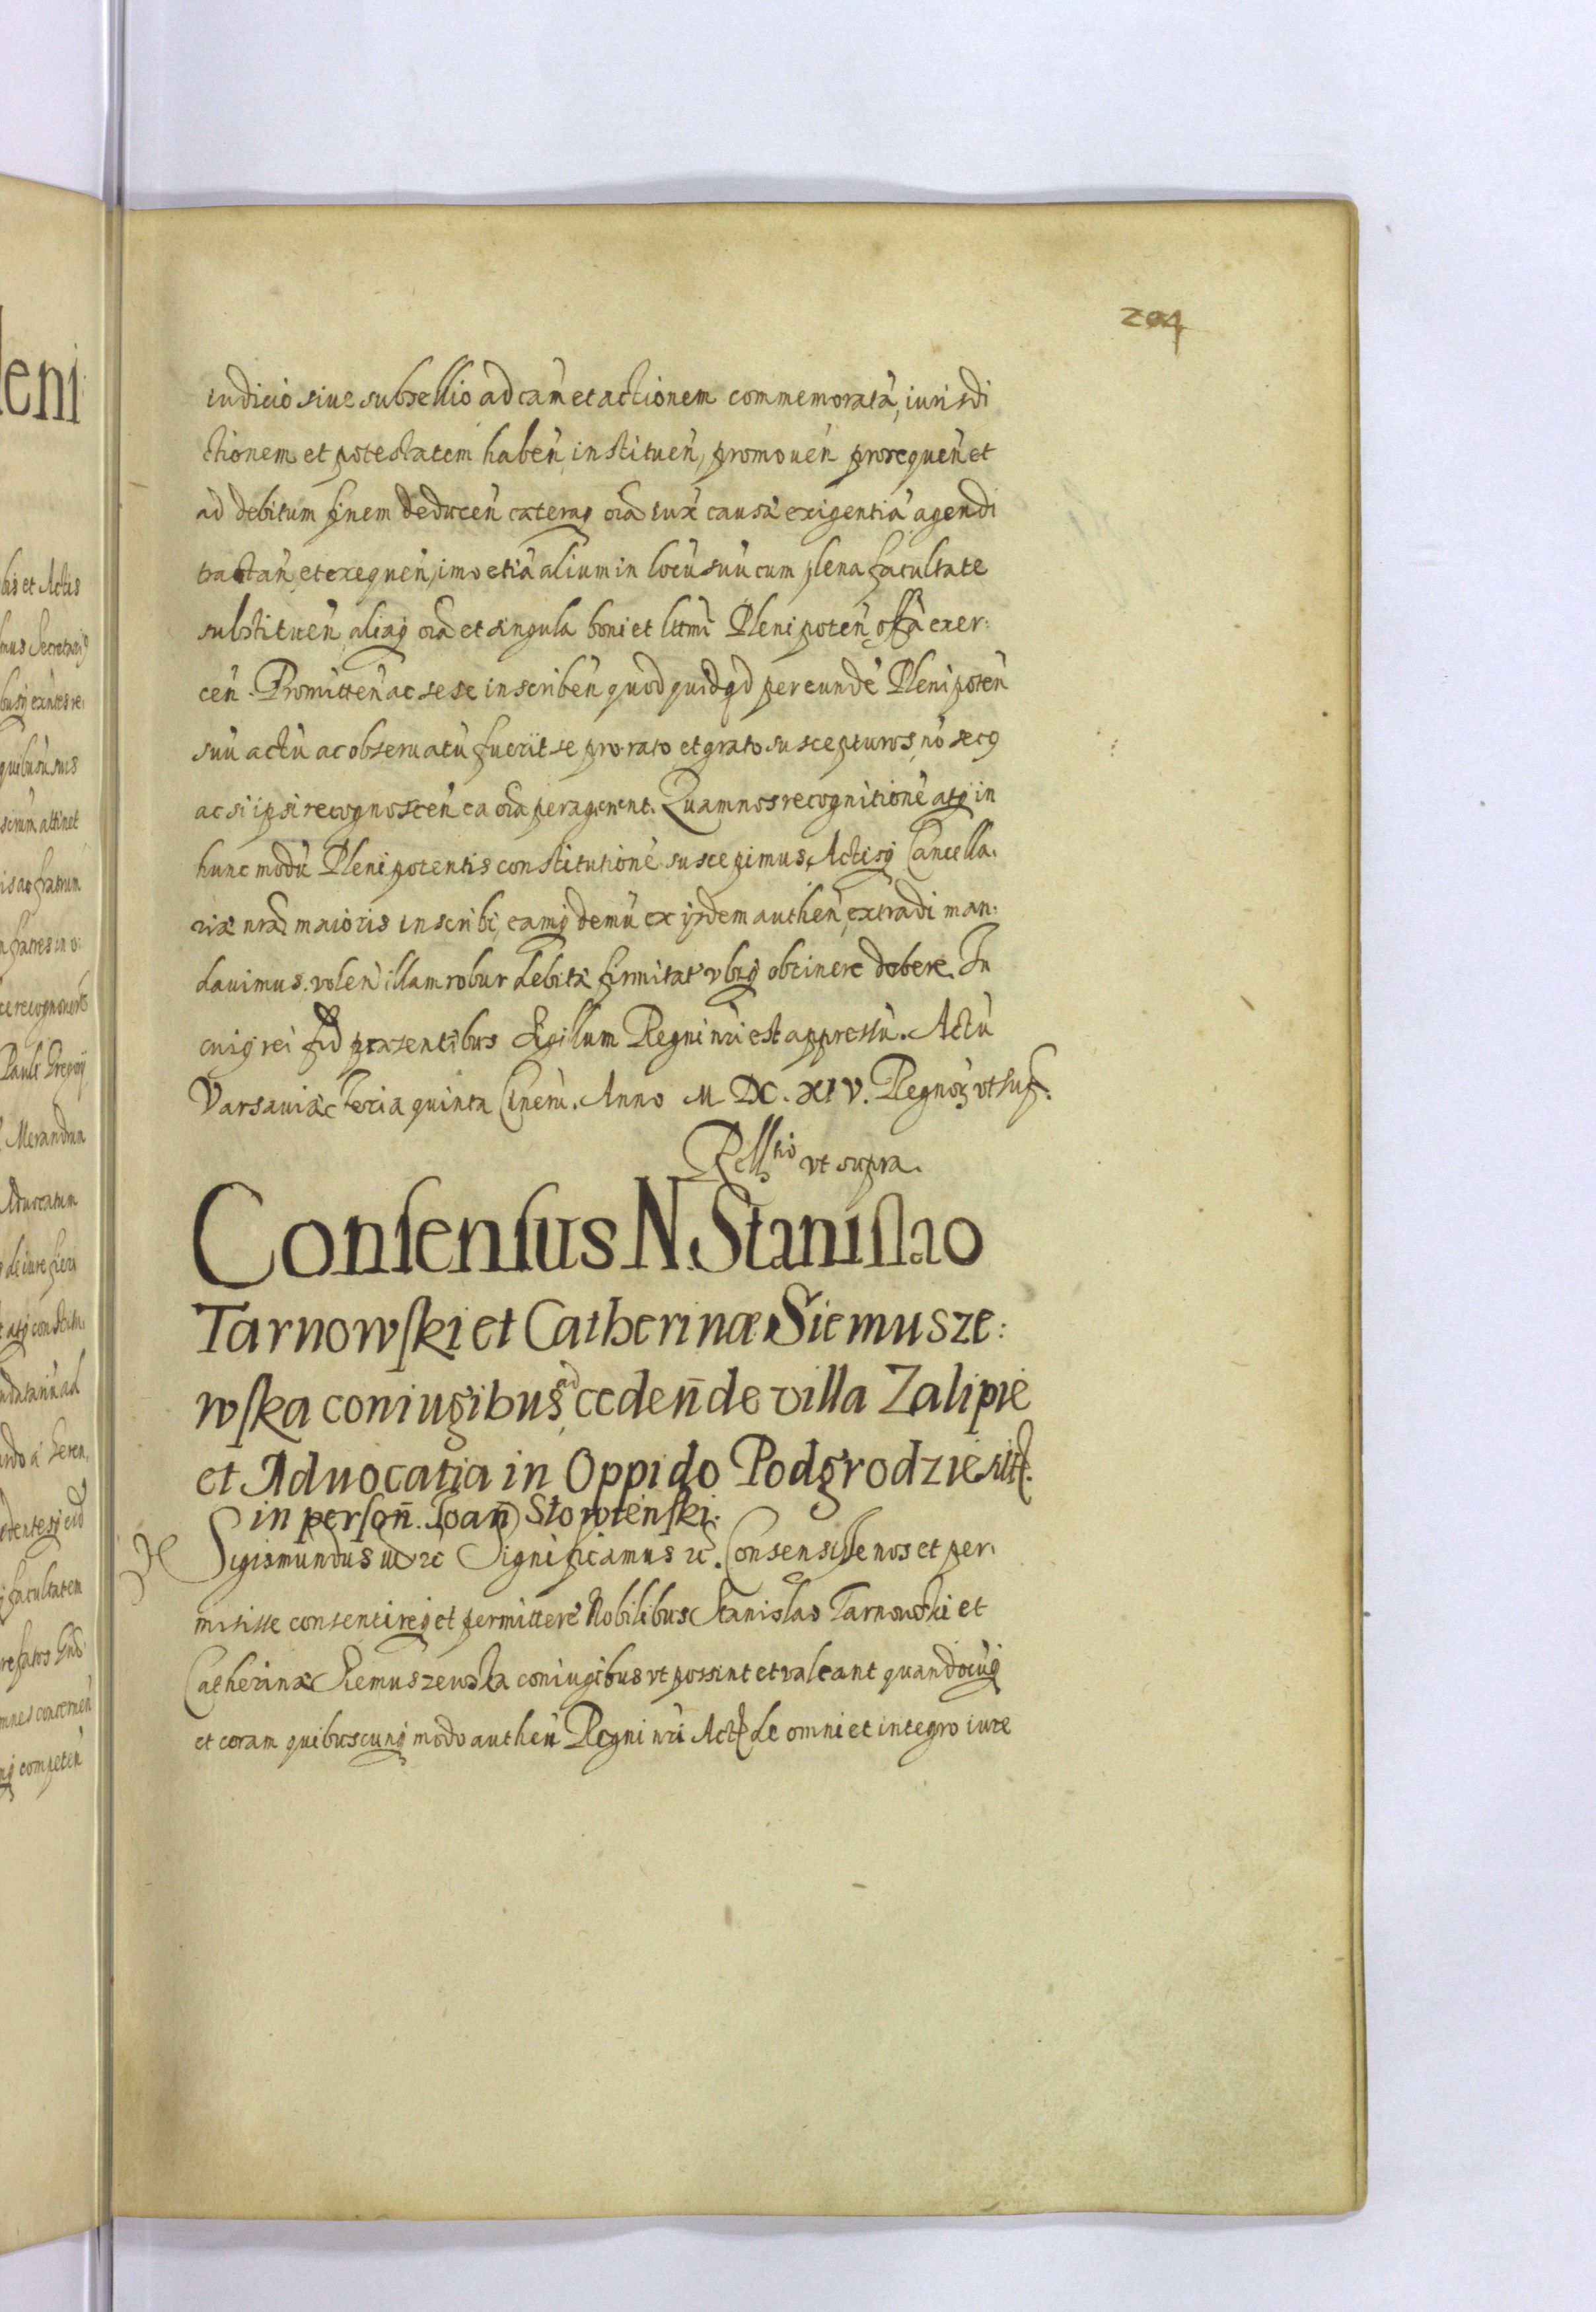 204
iudicio siue subsellio ad cam̃ et actionem commemoratã, iurisdi
ctionem et potestatem habeñ, institueñ, promoueñ prosequeñ et
ad debitum finem deduceñ cæteraq oĩa iux̃ causæ exigentiã agendi
tractañ, et exequeñ, imo etiã alium in locũ suũ cum plena facultate
substitueñ, aliaq oĩa et singula boni et lttmi Plenipoteñ offa exer:
ceñ. Promitteñ ac sese inscribeñ quod quidqd per eundẽ Plenipoteñ
suũ actũ ac obseruatũ fuerit se pro rato et grato suscepturos, nõ secq
ac si ipsi recognosceñ ea oĩa peragerent. Quam nos recognitionẽ atq in
hunc modũ Plenipotentis constitutionẽ suscepimus, Actisq Cancella.
riæ nrã maioris inscribi, eamq demũ ex ijsdem autheñ, extradi man:
dauimus. voleñ illam robur debitæ firmitat vbiq obtinere debere. In
cuiq rei fid præsentibus Sigillum Regni nri est appressũ. Actũ
Varsauiæ Feria quinta Cinerũ. Anno M DC. XIV. Regnoꝝ vt sup.
Relltio vt supra.
Consensus N. Stanislao
Tarnowski et Catherinæ Siemusze:
wska coniugibus, ad cedeñ de villa Zalipie
et Aduocatia in Oppido Podgrodzie sit.
in persoñ. Ioañ Słowieński.
Sigismundus III etc Significamus etc. Consensisse nos et per.
misisse consentireq et permittere Nobilibus Stanislao Tarnowski et
Catherinæ Siemuszewska coniugibus vt possint et valeant quandocũq
et coram quibuscunq modo autheñ Regni nri Act de omni et integro iure